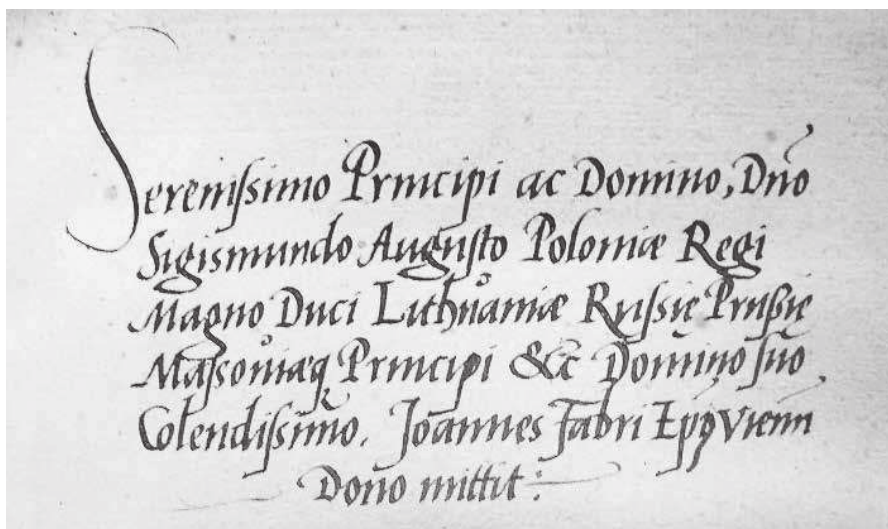 Serenissimo Principi ac Domino, Dño
Sigismundo Augusto Poloniæ Regi
Magno Duci Lithuaniæ Russię Prussię
Massoviæq Principi &c Domino suo
Colendissimo. Joannes Fabri Epp Vienn
Dono mittit: